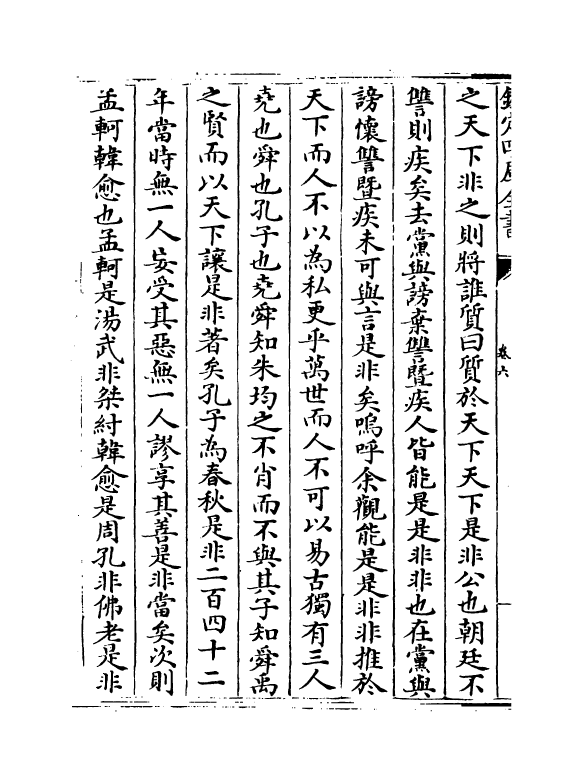 欽定四庫全書
卷六
之天下非之則將誰質曰質於天下天下是非公也朝廷不
讐則疾矣去黨與謗棄讐暨疾人皆能是是非非也在黨與
謗懷讐暨疾未可與言是非矣嗚呼余觀能是是非非推於
天下而人不以為私更乎萬世而人不可以易古獨有三人
堯也舜也孔子也堯舜知朱均之不肖而不與其子知舜禹
之賢而以天下讓是非著矣孔子為春秋是非二百四十二
年當時無一人妄受其惡無一人謬享其善是非當矣次則
孟軻韓愈也孟軻是湯武非桀紂韓愈是周孔非佛老是非